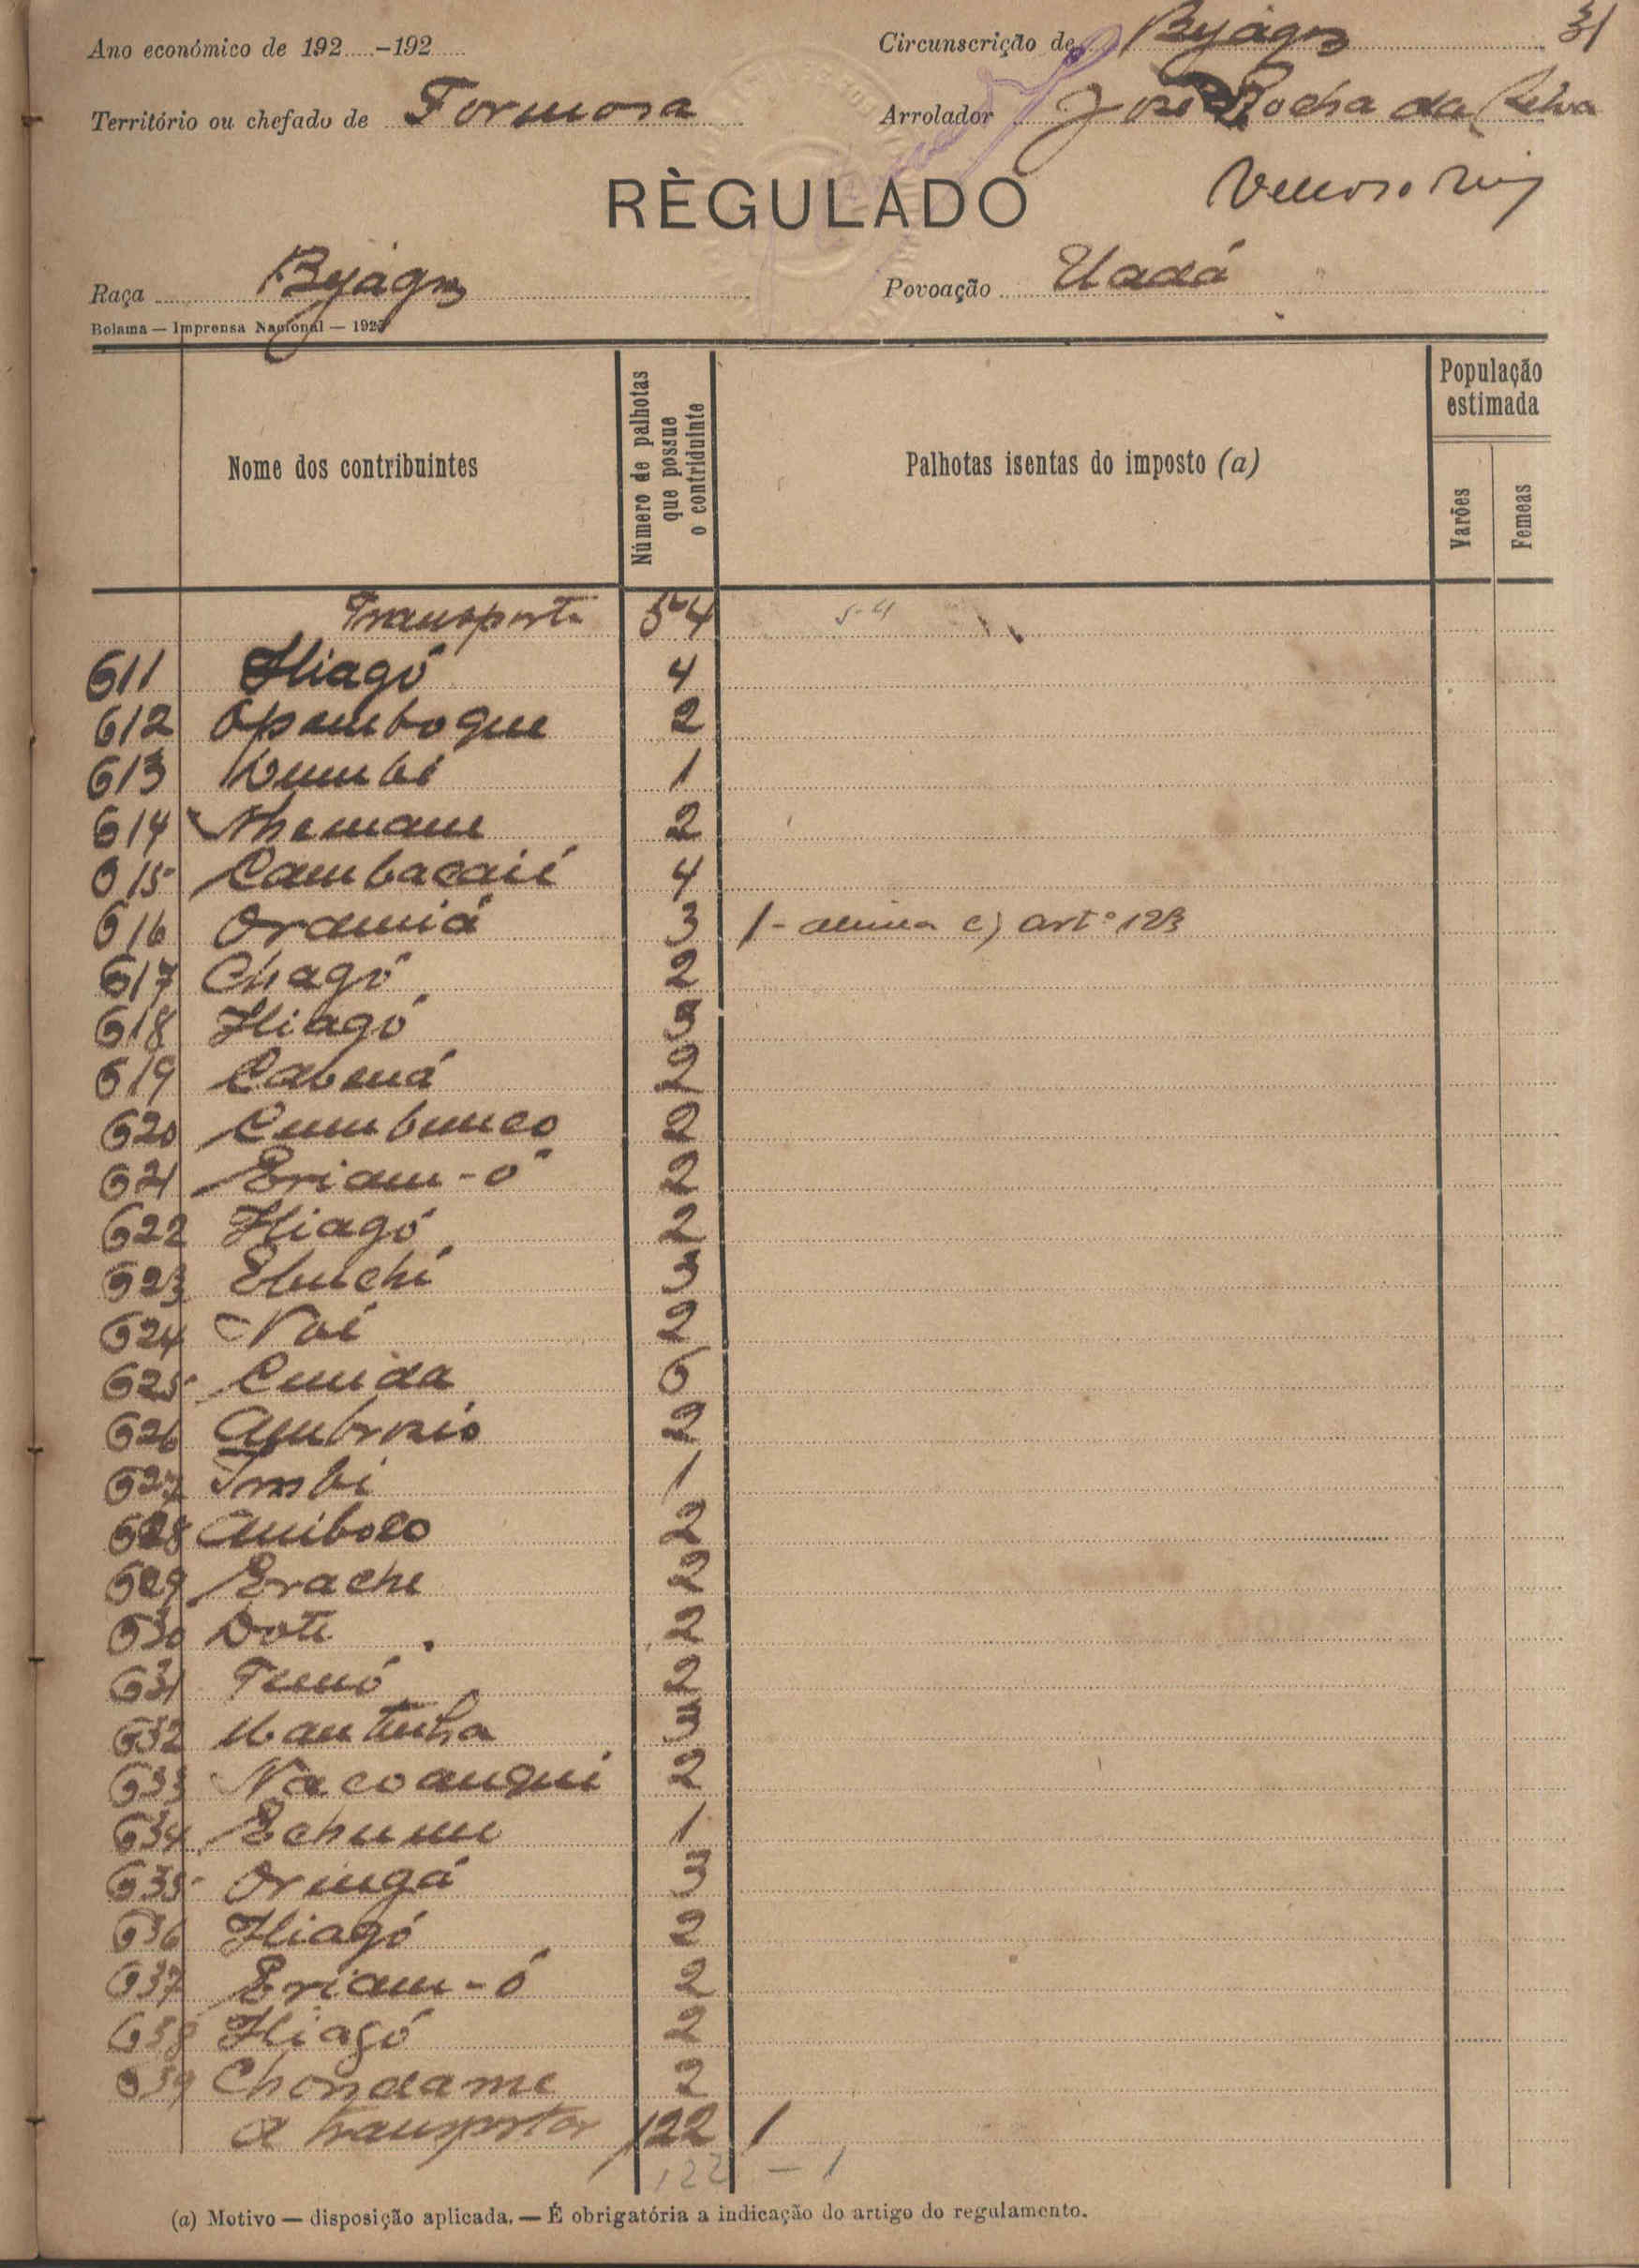 31
Ano económico de 192.....-192..... Circunscrição de Byágos
Território ou chefado de Formosa Arrolador José Rocha da Silva
RÈGULADO
Raça Byágos Povoação Uadá
Bolama — Imprensa Nacional — 192
Nome dos contribuintes
Número de palhotas que possue o contriduinte
Palhotas isentas do imposto (a)
População estimada
Varões
Femeas
Transporte 54 54
611 Iliagó 4
612 Opamboque 2
613 Kumbi 1
614 Nhemane 2
615 Cambacaié 4
616 Oramiá 3 1 - alinea c) artº 123
617 Chagó 2
618 Iliagó 3
619 Cabená 2
620 Cumbunco 2
621 Eriam-ó 2
622 Iliagó 2
623 Ebuchi 3
624 Noi 2
625 Cunida 6
626 Ambrosio 2
627 Imbi 1
628 Aniboco 2
629 Erache 2
630 Doti 2
631 Tumó 2
632 Mantinha 3
633 Nacoanqui 2
634 Echume 1
635 Oringá 3
636 Iliagó 2
637 Eriam-ó 2
638 Iliagó 2
639 Chondame 2
a transportar 122 1
122 - 1
(a) Motivo — disposição aplicada. — É obrigatória a indicação do artigo do regulamento.